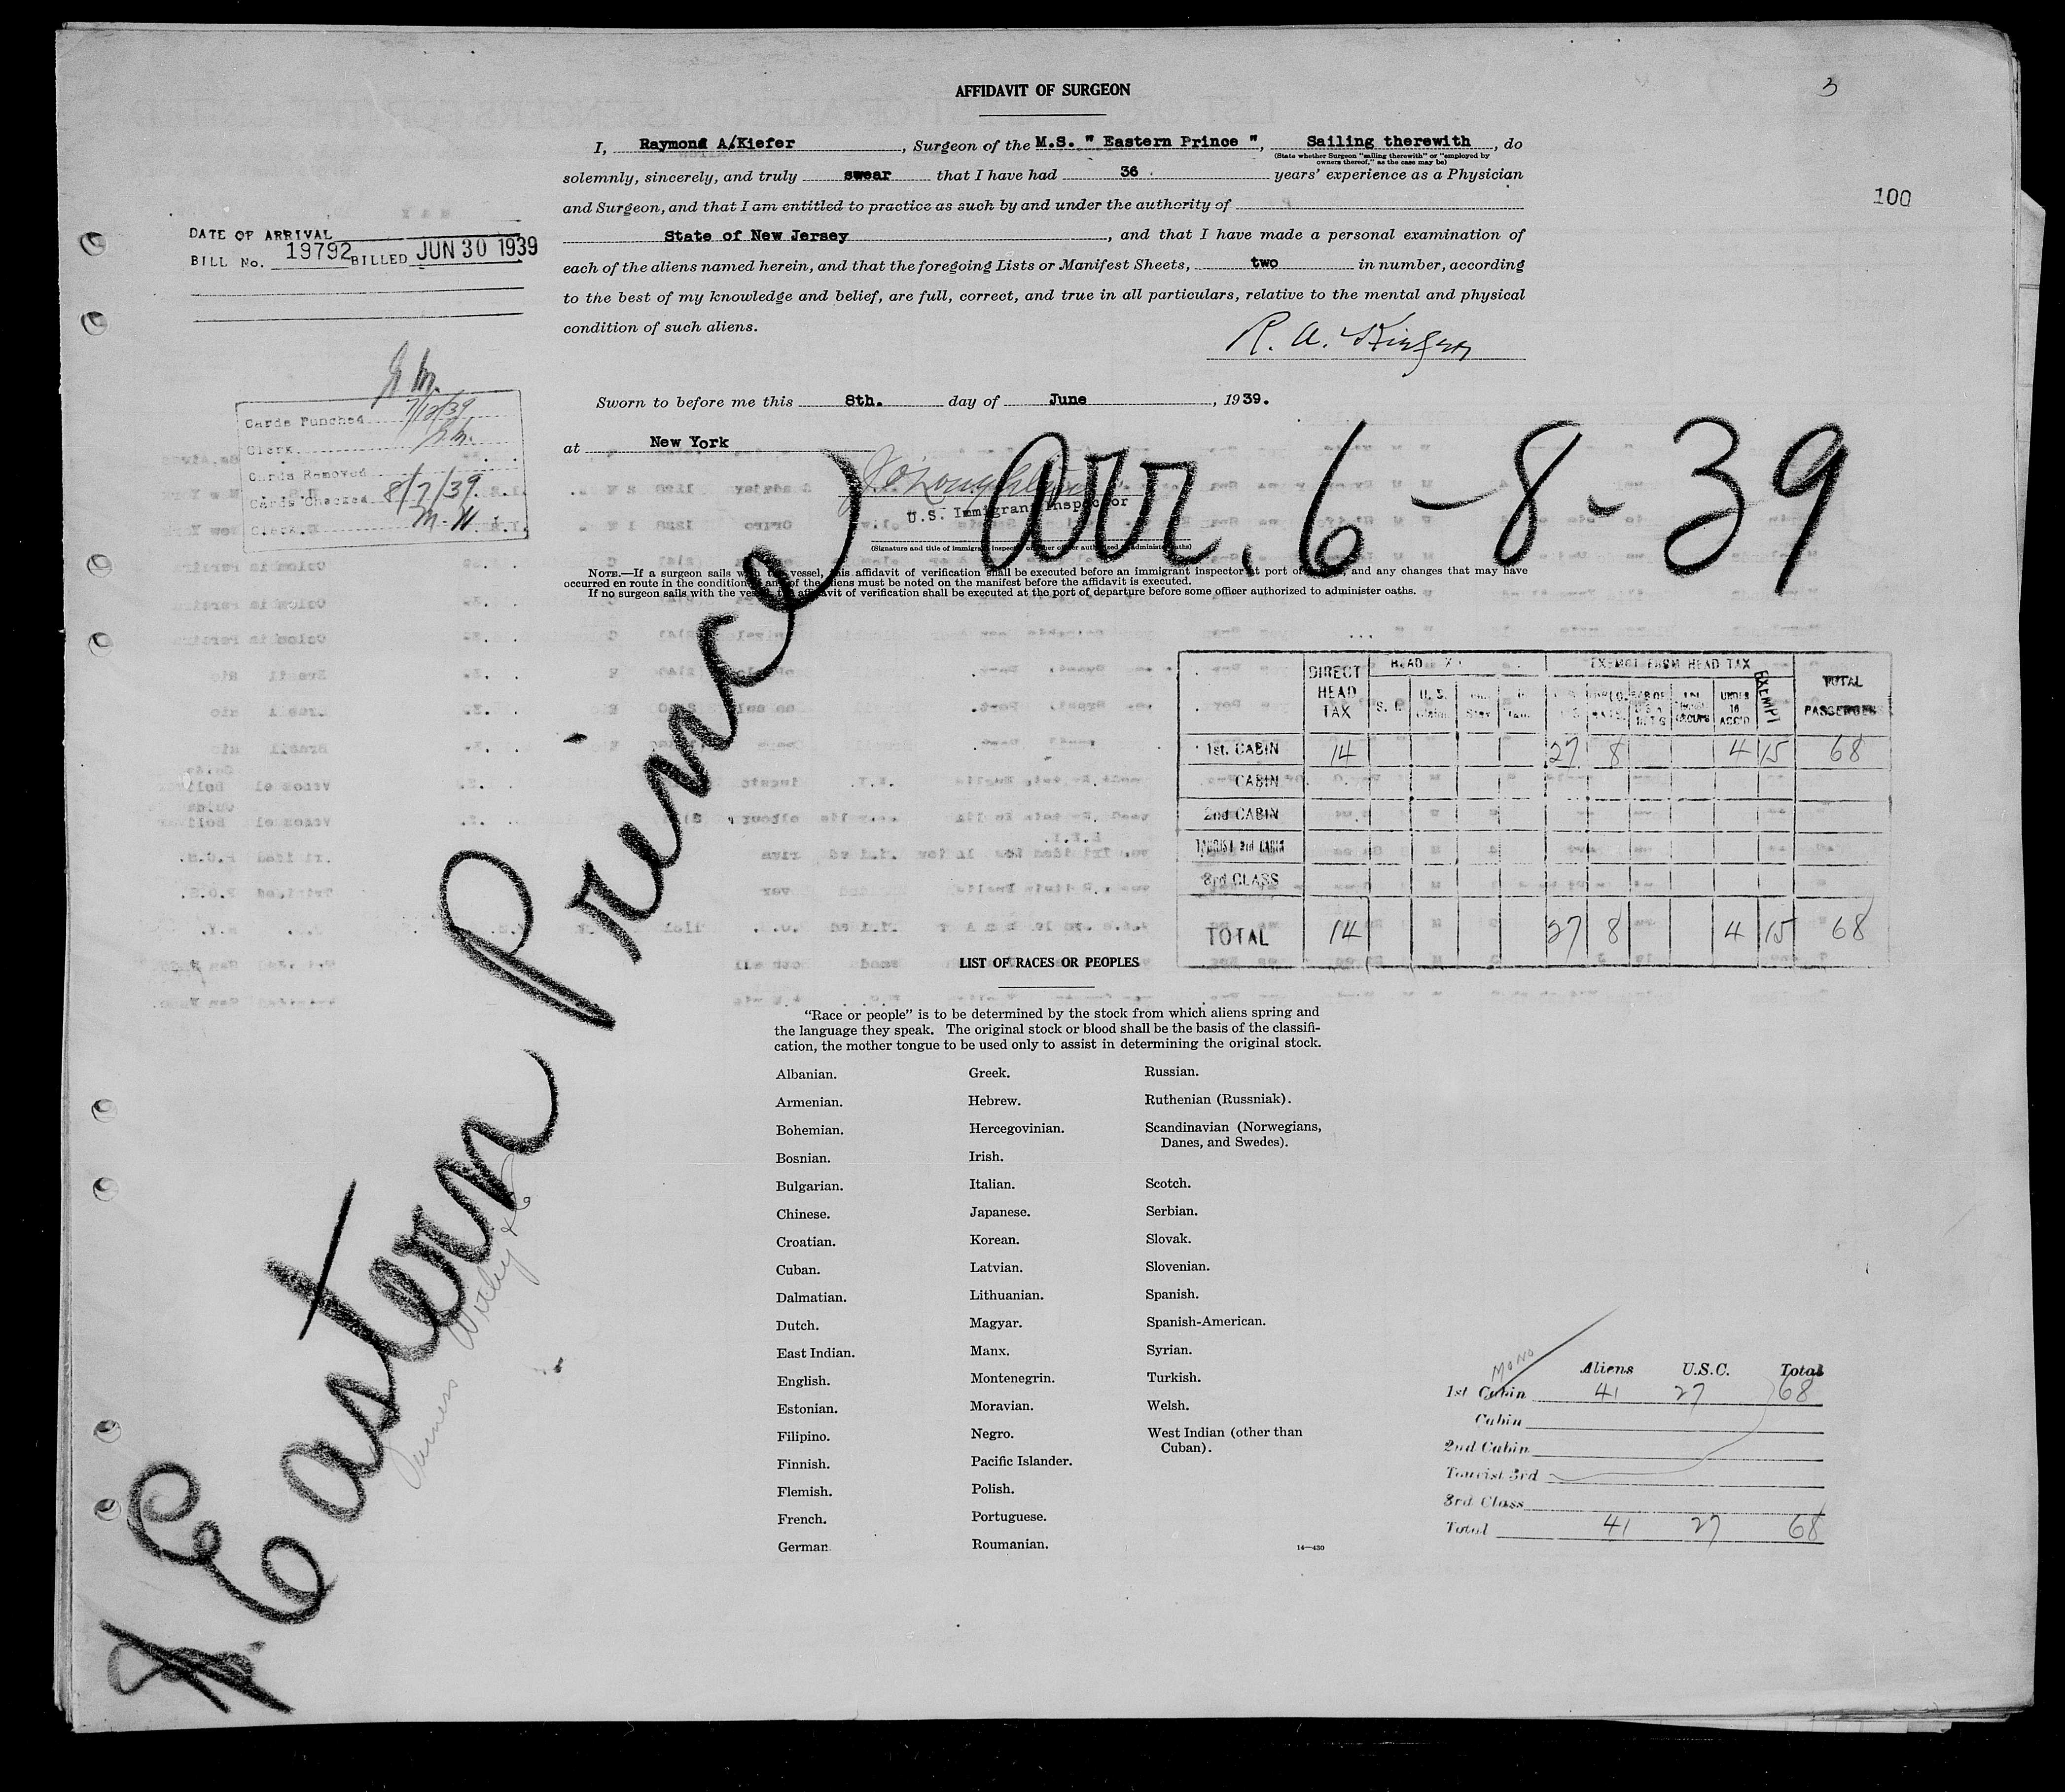 AFFIDAVIT OF SURGEON
3
I, Raymond A/Kiefer, Surgeon of the M.S. " Eastern Prince ", Sailing therewith, do
(State whether Surgeon "sailing therewith" or "employed by
owners thereof," as the case may be)
solemnly, sincerely, and truly swear that I have had 36 years' experience as a Physician
100
and Surgeon, and that I am entitled to practice as such by and under the authority of
State of New Jersey, and that I have made a personal examination of
each of the aliens named herein, and that the foregoing Lists or Manifest Sheets, two in number, according
to the best of my knowledge and belief, are full, correct, and true in all particulars, relative to the mental and physical
condition of such aliens.
DATE OF ARRIVAL
BILL No. 19792 BILLED JUN 30 1939
R. A. Kiefer
Cards Punched 7/12/39
Clerk
Cards Removed
Cards Checked 8/7/39
Clerk M. H.
Sworn to before me this 8th. day of June, 1939.
at New York
U.S. Immigrant Inspector
(Signature and title of immigrant inspector or other officer authorized to administer oaths)
arr. 6-8-39
NOTE.—If a surgeon sails with the vessel, this affidavit of verification shall be executed before an immigrant inspector at port of arrival, and any changes that may have
occurred en route in the condition of any of the aliens must be noted on the manifest before the affidavit is executed.
If no surgeon sails with the vessel the affidavit of verification shall be executed at the port of departure before some officer authorized to administer oaths.
Eastern Prince
Furness Withy & Co
DIRECT HEAD TAX
HEAD
EXEMPT FROM HEAD TAX
TOTAL PASSENGER
U. S.
UNDER 16 ACC'D
EXEMPT
1st. CABIN 14 27 8 4 15 68
CABIN
2nd CABIN
TOURIST 3rd CABIN
3rd CLASS
TOTAL 14 27 8 4 15 68
LIST OF RACES OR PEOPLES
"Race or people" is to be determined by the stock from which aliens spring and
the language they speak. The original stock or blood shall be the basis of the classifi-
cation, the mother tongue to be used only to assist in determining the original stock.
Albanian.
Armenian.
Bohemian.
Bosnian.
Bulgarian.
Chinese.
Croatian.
Cuban.
Dalmatian.
Dutch.
East Indian.
English.
Estonian.
Filipino.
Finnish.
Flemish.
French.
German.
Greek.
Hebrew.
Hercegovinian.
Irish.
Italian.
Japanese.
Korean.
Latvian.
Lithuanian.
Magyar.
Manx.
Montenegrin.
Moravian.
Negro.
Pacific Islander.
Polish.
Portuguese.
Roumanian.
Russian.
Ruthenian (Russniak).
Scandinavian (Norwegians,
Danes, and Swedes).
Scotch.
Serbian.
Slovak.
Slovenian.
Spanish.
Spanish-American.
Syrian.
Turkish.
Welsh.
West Indian (other than
Cuban).
14—430
MONO
Aliens U.S.C. Total
1st Cabin 41 27 68
Cabin
2nd Cabin
Tourist 3rd
3rd Class
Total 41 27 68